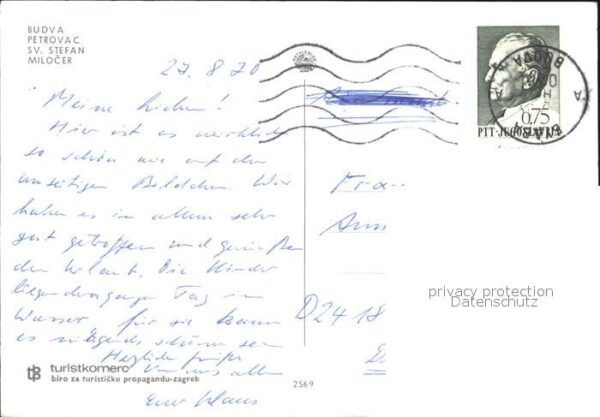 BUDVA
PETROVAC
SV. STEFAN
MILOČER
27.8.70
Meine Lieben!
Hier ist es wirklich
so schön wie auf den
umseitigen Bildchen. Wir
haben es in allem sehr
gut getroffen und genießen
den Urlaub. Die Kinder
liegen den ganzen Tag im
Wasser, für sie kann
es nirgends schöner sein
Herzliche Grüße
Von uns allen
Euer Klaus
0,75
PTT-JUGOSLAVIJA
BUDVA
Fra
D 2418
privacy protection
Datenschutz
turistkomerc
biro za turističku propagandu-zagreb
2569